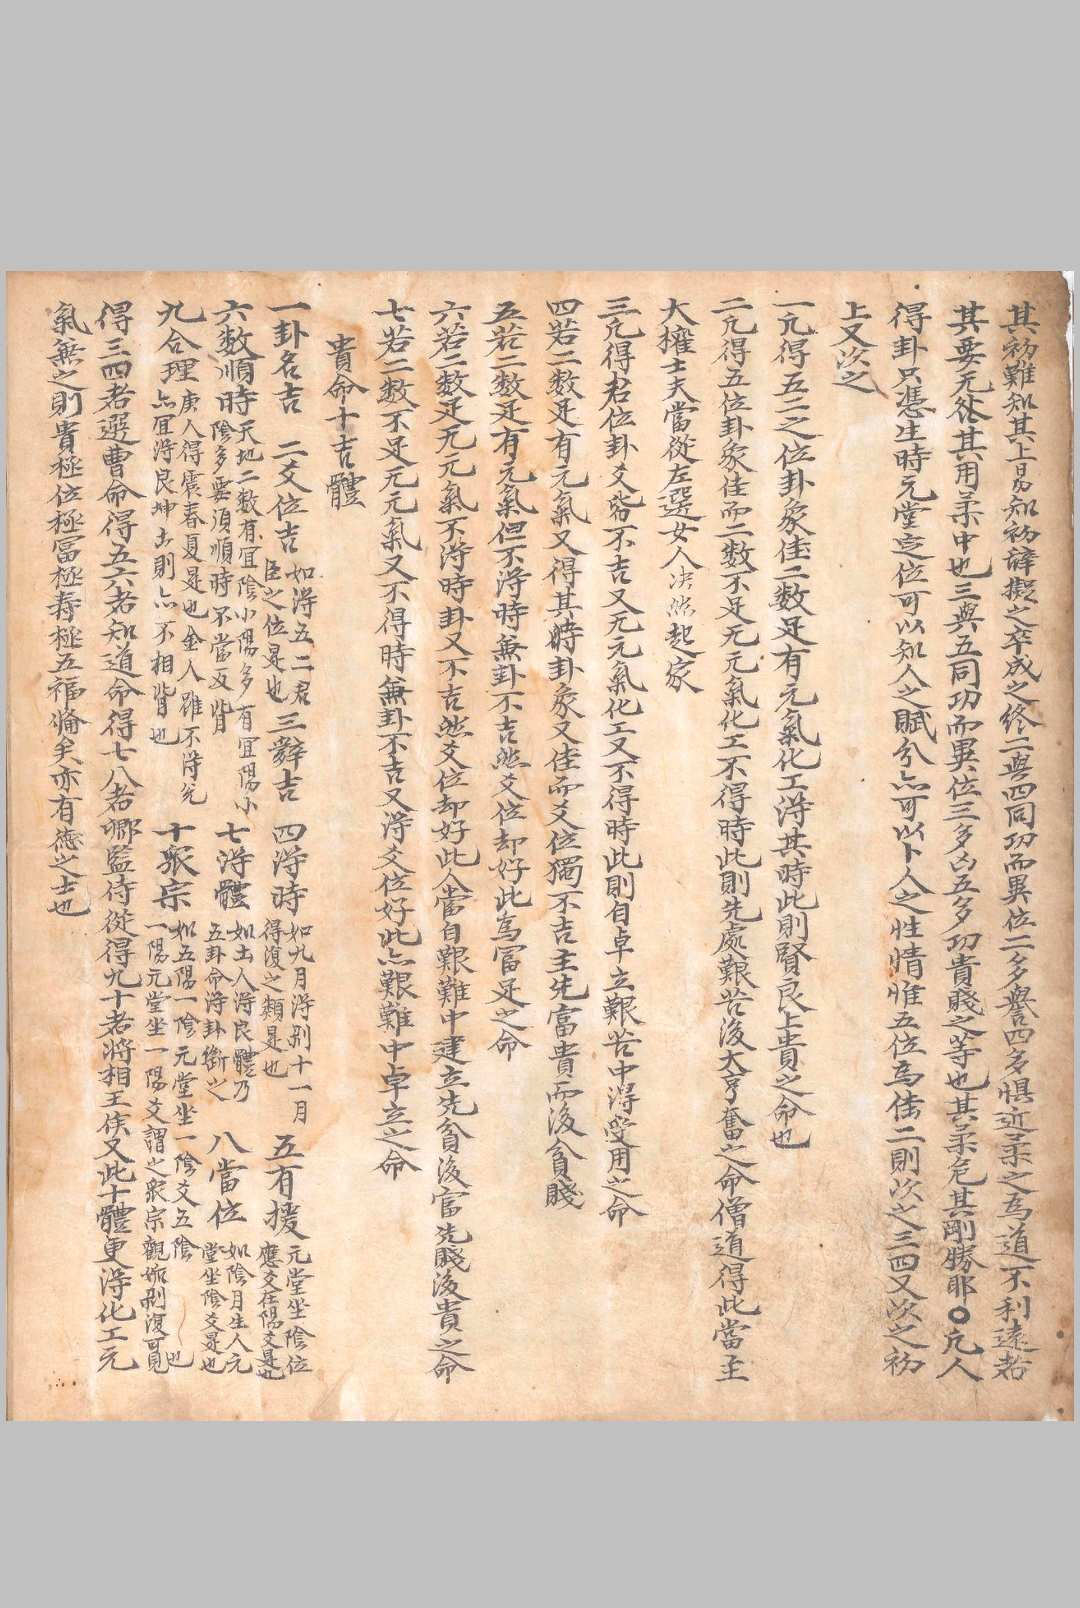 其初難知其上易知初辭擬之卒成之終二與四同功而異位二多譽四多懼近柔之為道不利遠者
其要无咎其用柔中也三與五同功而異位三多凶五多功貴賤之等也其柔危其剛勝耶○凢人
得卦只憑生時元堂定位可以知人之賦分亦可以卜人之性情惟五位為佳二則次之三四又次之初
上又次之
一凢得五二之位卦象佳二数足有元氣化工淂其時此則賢良上貴之命也
二凢得五位卦象佳而二数不足无元氣化工不得時此則先處艱苦後大亨奮之命僧道得此當主
大權士夫當從左選女人决然起家
三凢得君位卦爻皆不吉又无元氣化工又不得時此則自卓立艱苦中淂受用之命
四若二数足有元氣又得其時卦象又佳而爻位獨不吉主先富貴而後貧賤
五若二数足有元氣但不淂時無卦不吉然爻位却好此為冨足之命
六若二数足无元氣不淂時卦又不吉然爻位却好此人當自艱難中建立先貧後富先賤後貴之命
七若二数不足无元氣又不得時無卦不吉又淂爻位好此亦艱難中卓立之命
貴命十吉體
一卦名吉 二爻位吉 如淂五二君臣之位是也 三辭吉 四淂時 如九月淂剝十一月得復之類是也 五有援 元堂坐陰位應爻在陽爻是也
六数順時 天地二数有宜陰小陽多有宜陽小陰多要須順時不當反背 七淂體 如土人淂艮體乃五卦命淂卦斷之 八當位 如陰月生人元堂坐陰爻是也
九合理 庚人得震春夏是也金人雖不淂兌亦宜淂艮坤土則亦不相背也 十衆宗 如五陽一陰元堂坐一陰爻五陰一陽元堂坐一陽爻謂之衆宗觀姤剝復可見也
得三四者選曹命得五六者知道命得七八者卿監侍從得九十者將相王侯又此十體更淂化工元
氣無之則貴極位極冨極壽極五福俻矣亦有德之士也